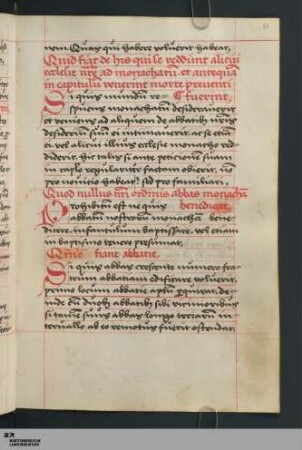 nom. Quas qui habere voluerit habeat.
Quid fiat de hiis qui se reddunt alicui
ecclesie nre ad monachatum et antequam
in capitulum venerint morte preventi
Si quis mundum re- fuerint.
spuens monachatum desideraverit
et veniens ad aliquem de abbatibus nris
desiderium suum ei intimaverit. ac se etiam
ei vel alicui illius ecclesie monacho red-
diderit. hic talis si ante peticionem suam
in caplo regulariter factam obierit. non
pro novicio habeatur sed pro familiari.
Quod nullus nri ordinis abbas monacham
Prohibitum est ne quis benedicat.
abbatum nostrorum monacham bene-
dicere. infantulum baptisare. vel etiam
in baptismo tenere presumat.
fiant abbatie.
Si quis abbas crescente numero fra-
trum abbatiam edificare voluerit.
primo locum abbatie aptum perquirat. de-
inde cum duobus abbatibus sibi vicinioribus
si tamen suus abbas longo terrarum in-
tervallo ab eo remotus fuerit ostendat.